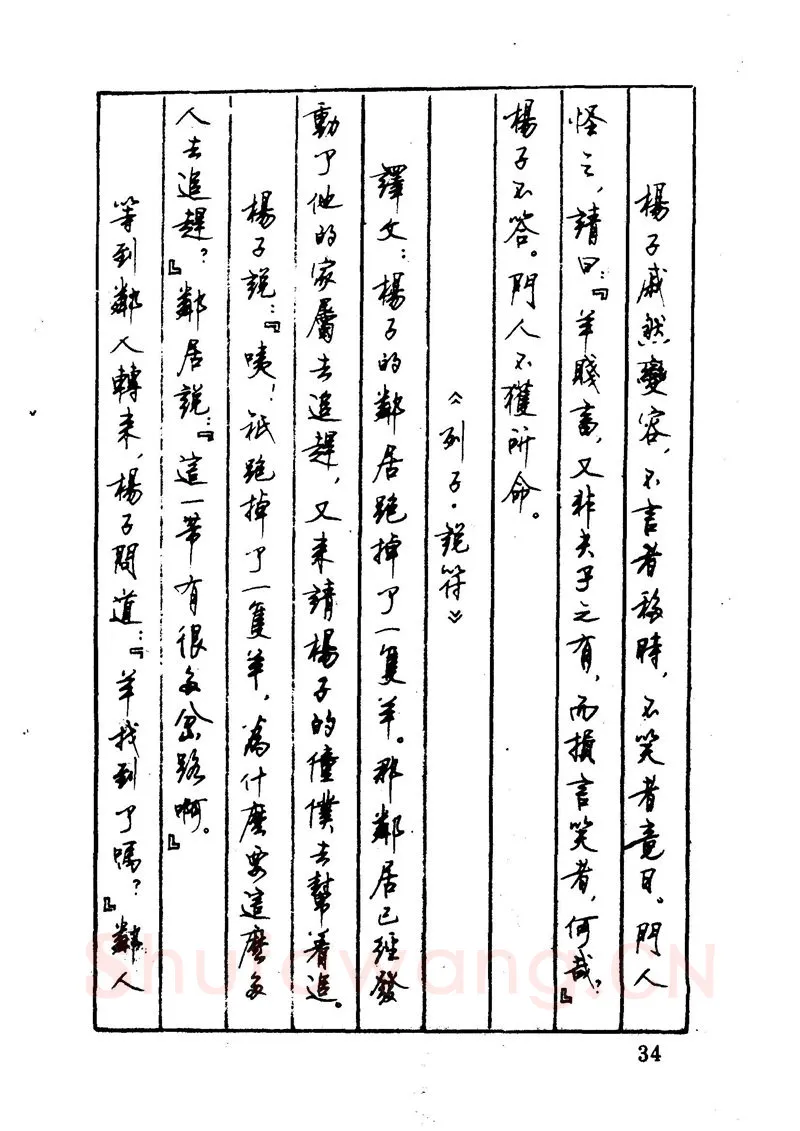 楊子戚然變容，不言者移時，不笑者竟日。門人
怪之，請曰：『羊賤畜，又非夫子之有，而損言笑者，何哉？』
楊子不答。門人不獲所命。
《列子·說符》
譯文：楊子的鄰居跑掉了一隻羊。那鄰居已經發
動了他的家屬去追趕，又來請楊子的僮僕去幫着追。
楊子說：『咦！祇跑掉了一隻羊，為什麼要這麼多
人去追趕？』鄰居說：『這一帶有很多岔路啊。』
等到鄰人轉來，楊子問道：『羊找到了嗎？』鄰人
34
Shufawang.CN